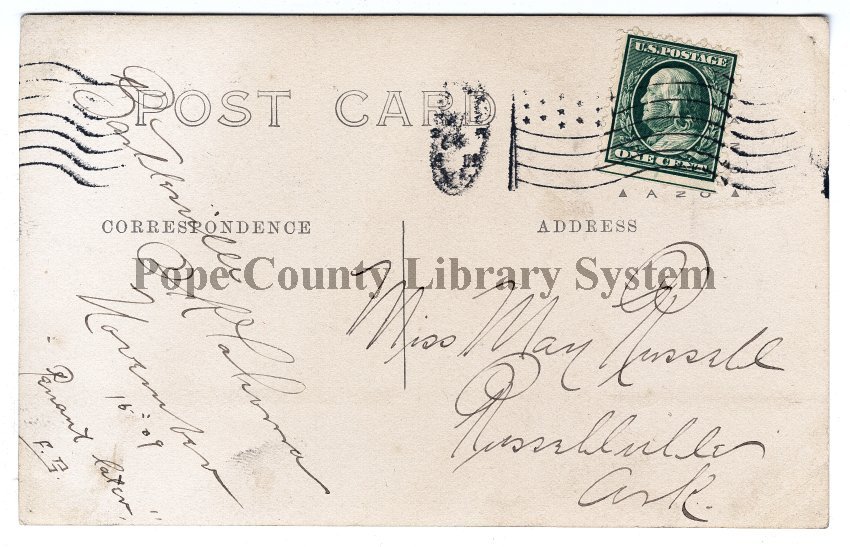 POST CARD
U.S. POSTAGE
ONE CENT
AZO
CORRESPONDENCE
ADDRESS
Pope County Library System
Bartlesville
Oklahoma
November
16" 09
later."
Miss May Russell
Russellville
Ark.